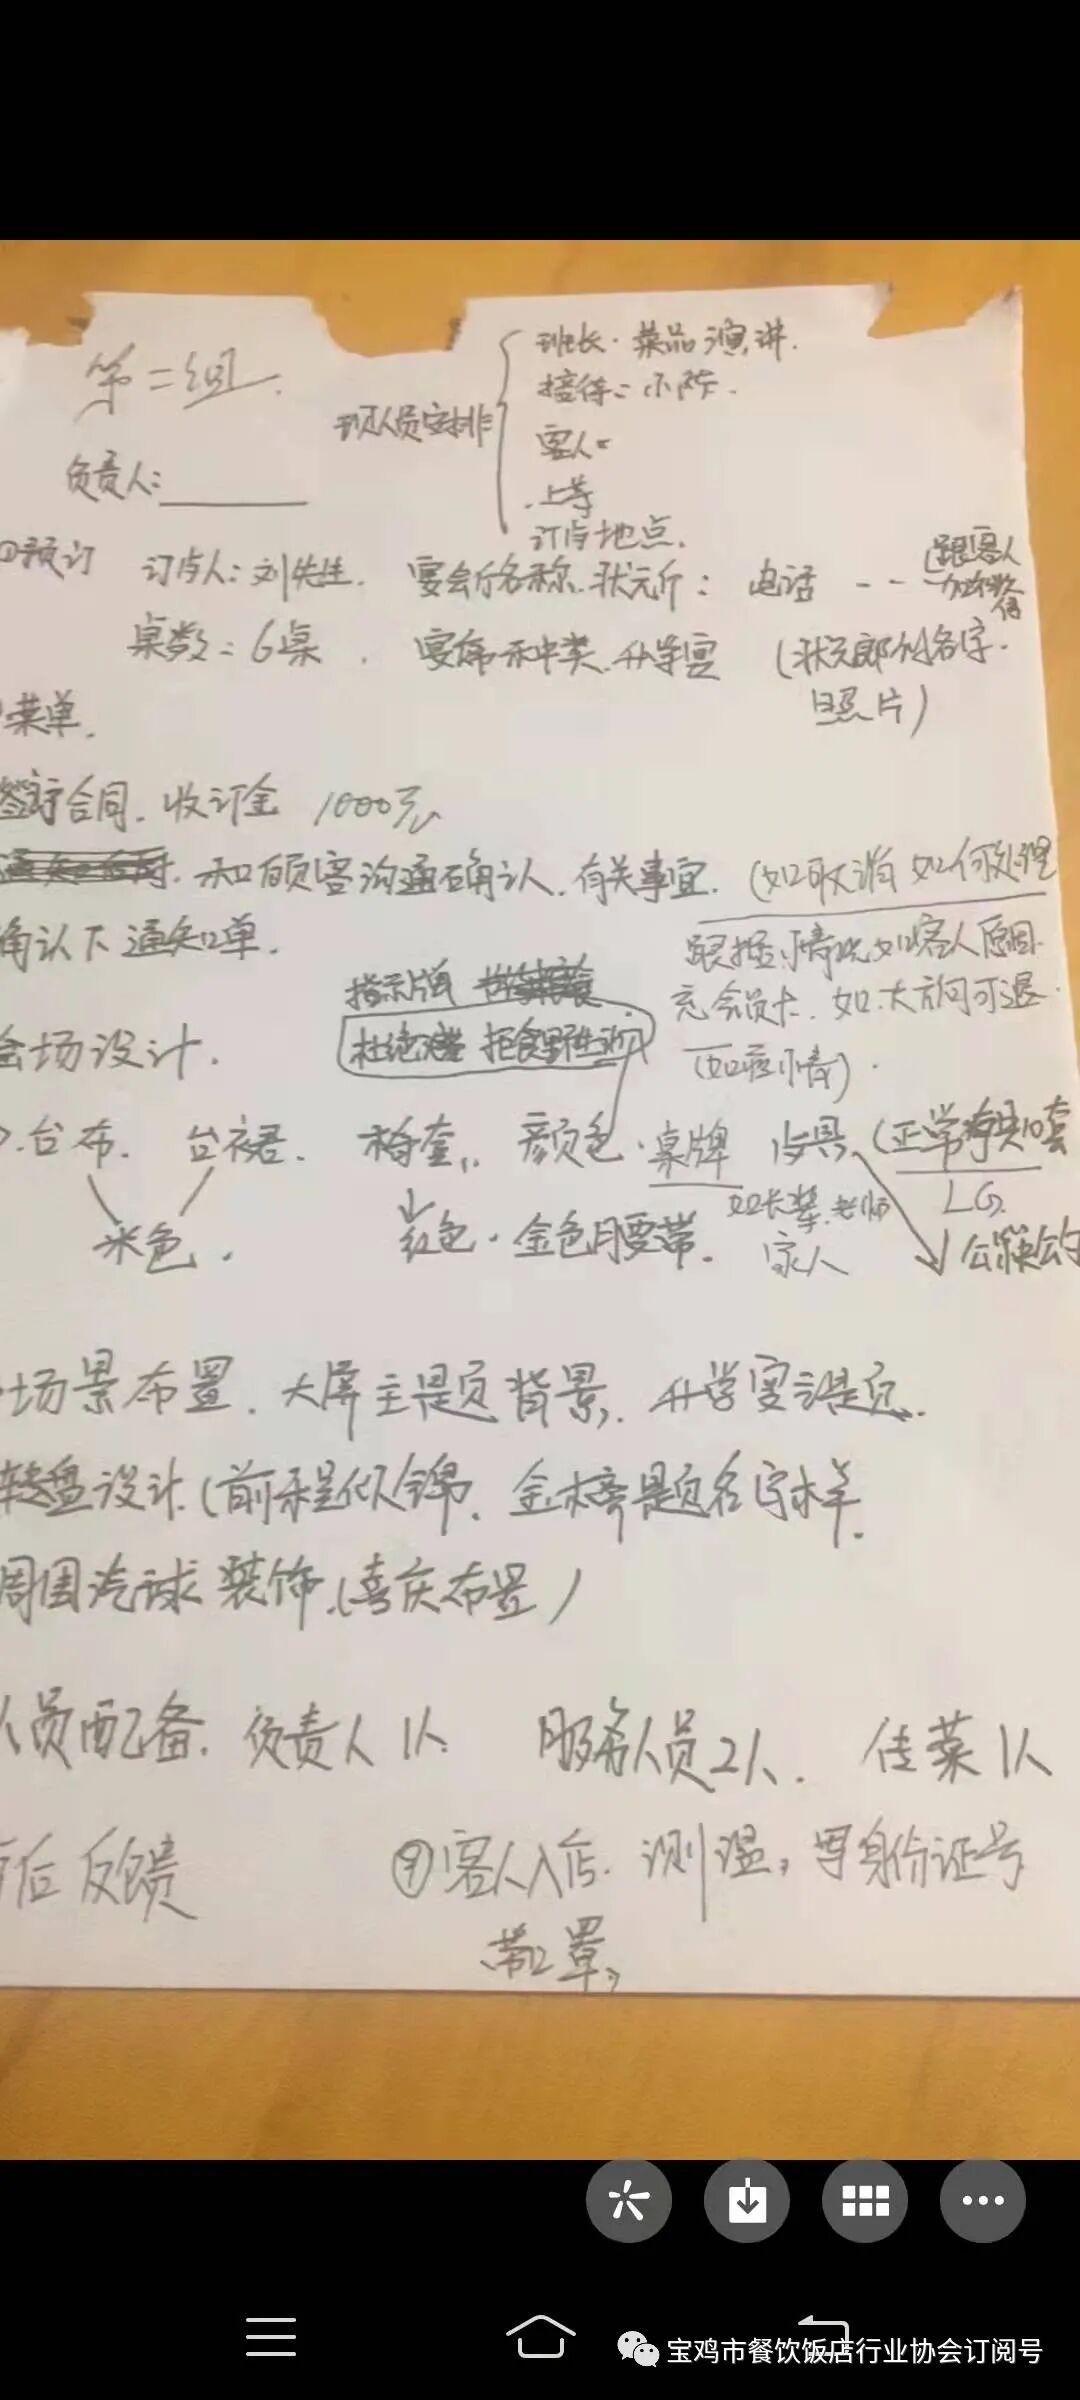 第二组.
负责人:
现人员安排
班长·菜品演讲.
接待: 小陈.
客人:
订台地点.
①预订 订台人:刘先生. 宴会厅名称.状元厅: 电话 -- (跟客人加微信
桌数: 6桌. 宴席种类.升学宴 (状元郎的名字.照片)
菜单.
签订合同. 收订金 1000元
和顾客沟通确认.有关事宜. (如取消 如何处理
跟据情况如客人原因.
充会员卡. 如.大方向可退.
(如疫情).
确认下通知单.
会场设计.
指示牌
杜绝浪费 拒食野生动
台布. 台裙. 椅套. 颜色·桌牌 (正常每桌10套
米色.
红色·金色腰带. 如长辈.老师
家人
公筷公勺
场景布置. 大屏主题背景. 升学宴主题.
转盘设计.(前程似锦. 金榜题名字样.
周围汽球装饰.(喜庆布置)
人员配备. 负责人1人. 服务人员2人. 传菜1人
后反馈
⑨客人入店. 测温, 写身份证号
带口罩,
宝鸡市餐饮饭店行业协会订阅号